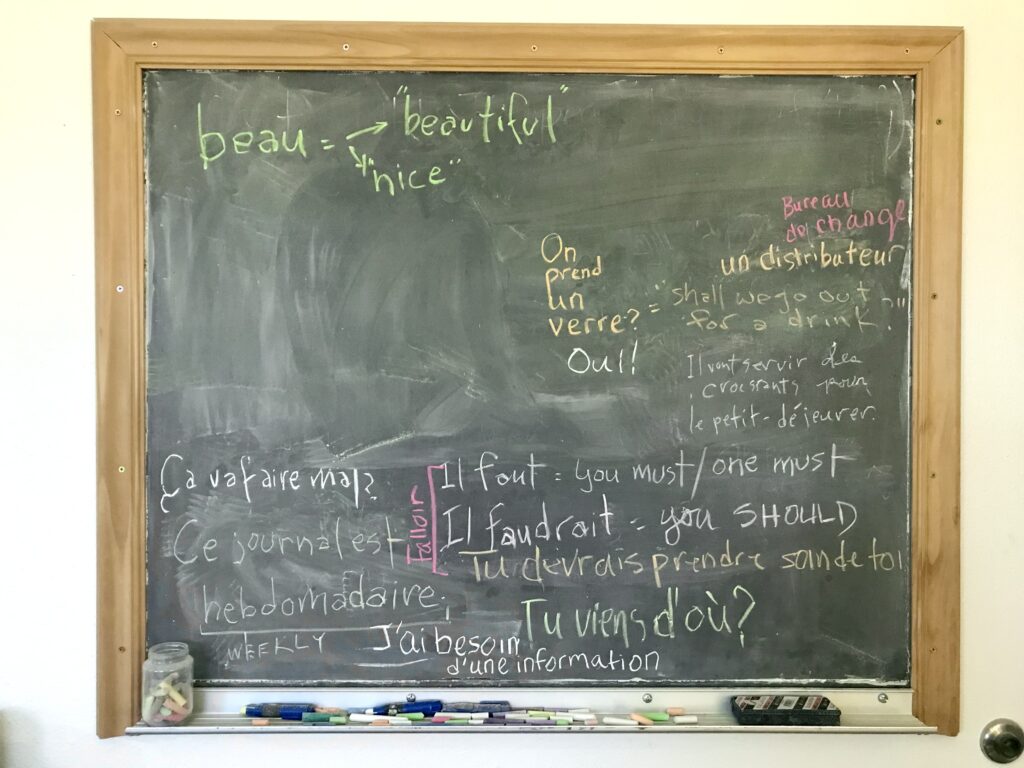 beau = "beautiful"
"nice"
Bureau
de change
un distributeur
On
prend
un
verre? = "shall we go out
for a drink?"
Oui!
Il vont servir des
croissants pour
le petit-déjeurer.
Ça va faire mal?
Ce journal est
hebdomadaire.
WEEKLY
Falloir
Il faut = you must/one must
Il faudrait = you SHOULD
Tu devrais prendre soin de toi
Tu viens d'où?
J'ai besoin
d'une information